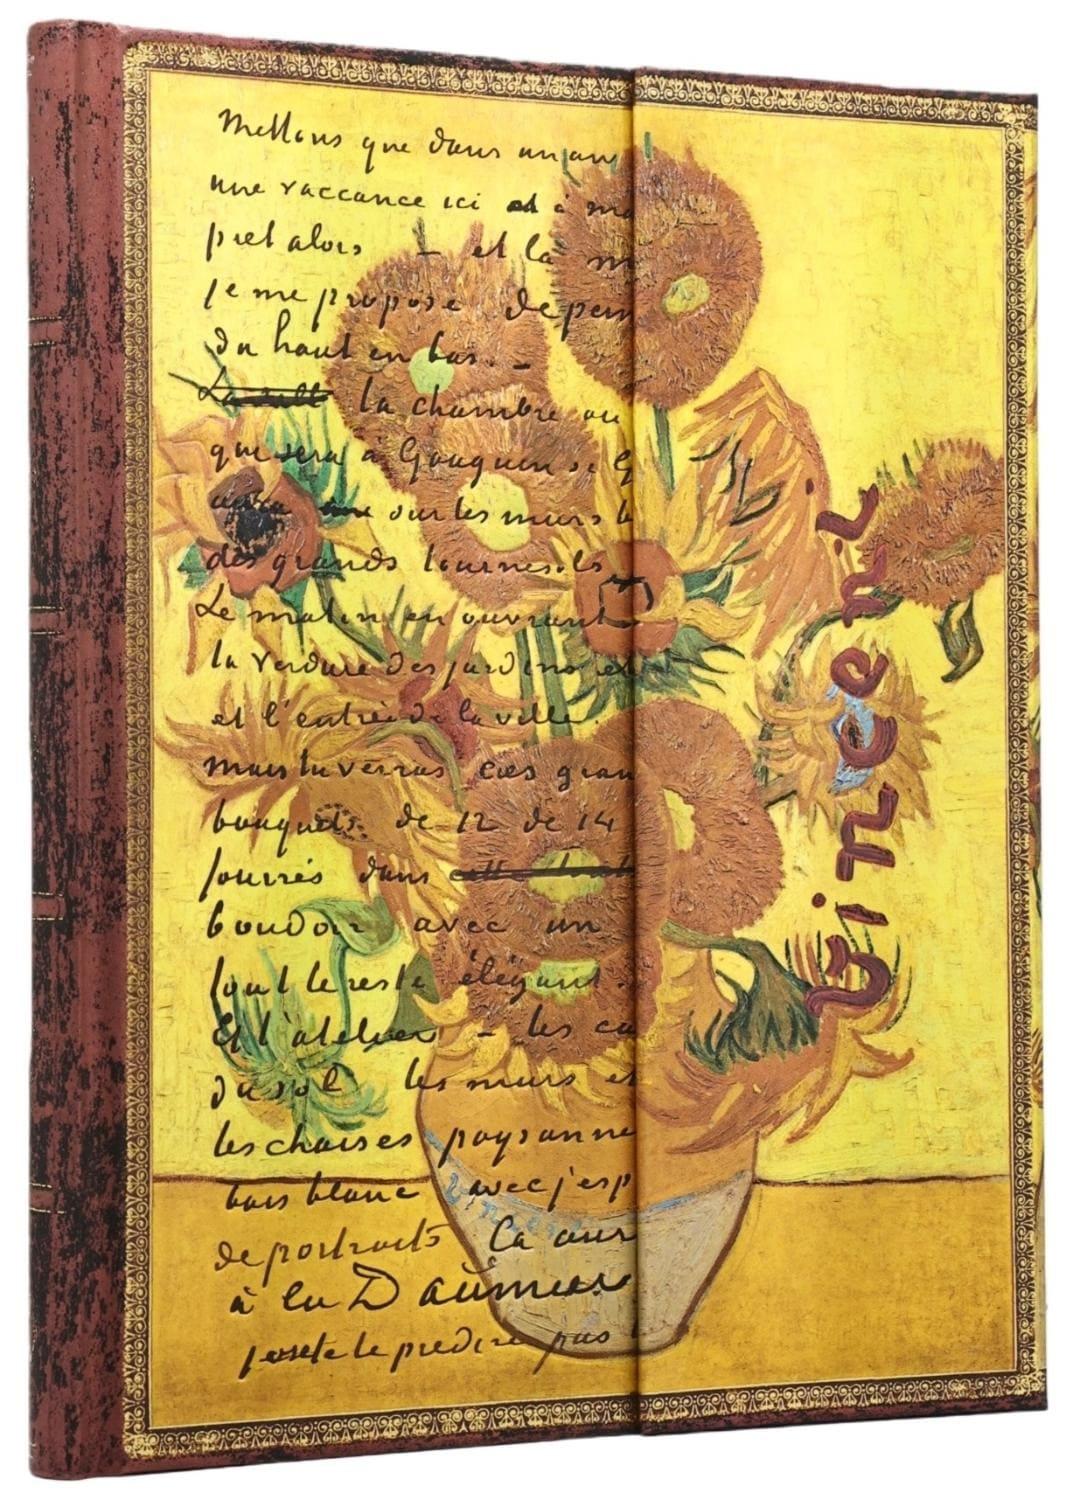 Mettons que dans un an
une vaccance ici et à ma
pret alors – et la m
je me propose de pein
du haut en bas. –
la chambre ou
que sera à Gauguin si G
sur les murs b
des grands tournesols
Le matin en ouvrant
la verdure des jardins et
et l'entrée de la ville.
mais tu verras ces gran
bouquets de 12 de 14
fourrés dans
boudoir avec un
tout le reste élégant.
Et l'atelier – les ca
du sol les murs et
les chaises paysanne
bois blanc avec j'esp
de portraits Ça aur
à la Daumier
je le predire pas
Vincent
Vincent